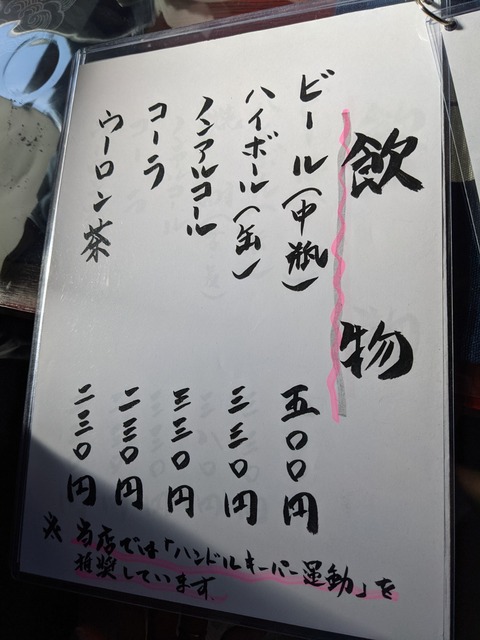 飲物
ビール(中瓶) 五〇〇円
ハイボール(缶) 三三〇円
ノンアルコール 三三〇円
コーラ 二三〇円
ウーロン茶 二三〇円
※当店では「ハンドルキーパー運動」を
推奨しています。